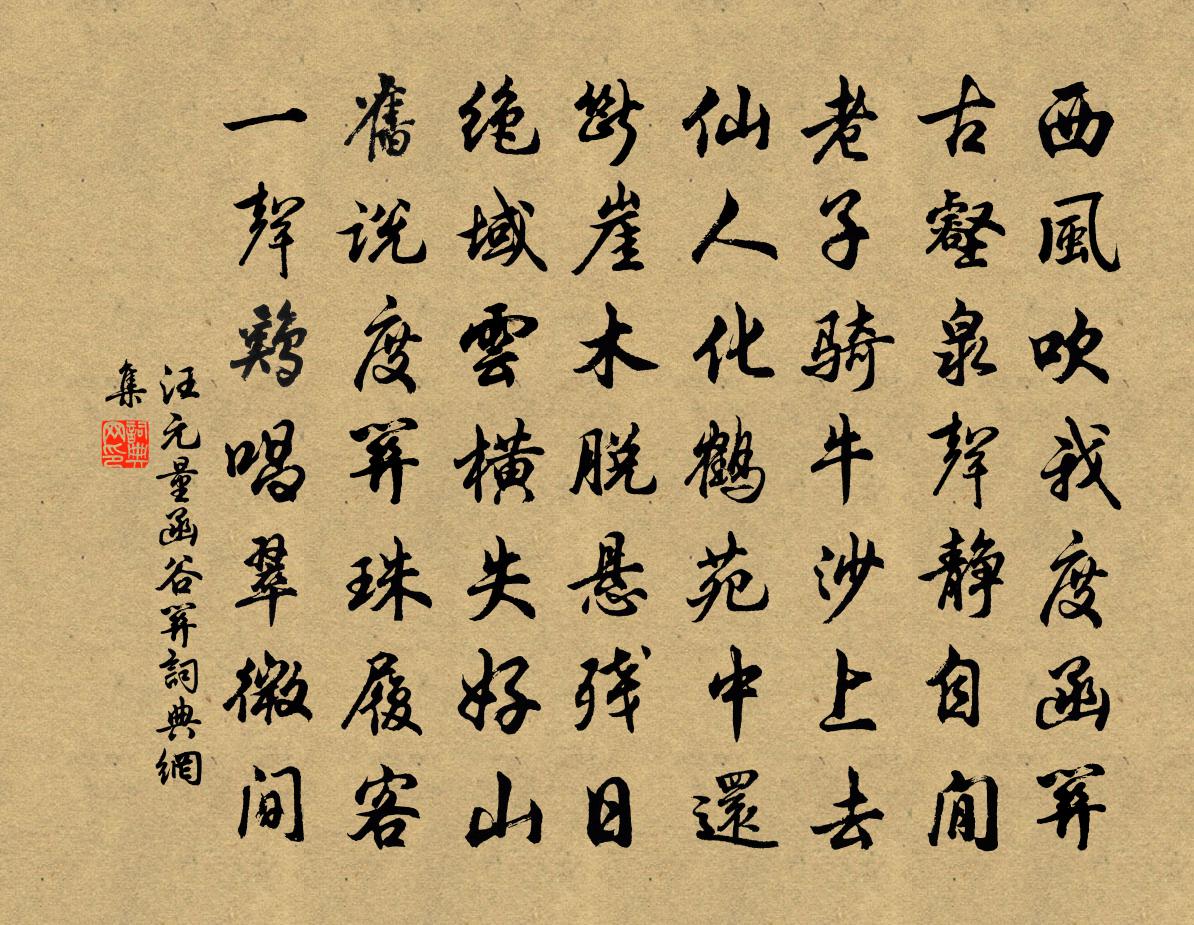 西風吹我度函関
古壑泉聲靜自閒
老子騎牛沙上去
仙人化鶴苑中還
斷崖木脱懸殘日
絶域雲橫失好山
舊説度関珠履客
一聲鷄唱翠微間
汪元量函谷関詞典網
集
詞典網印